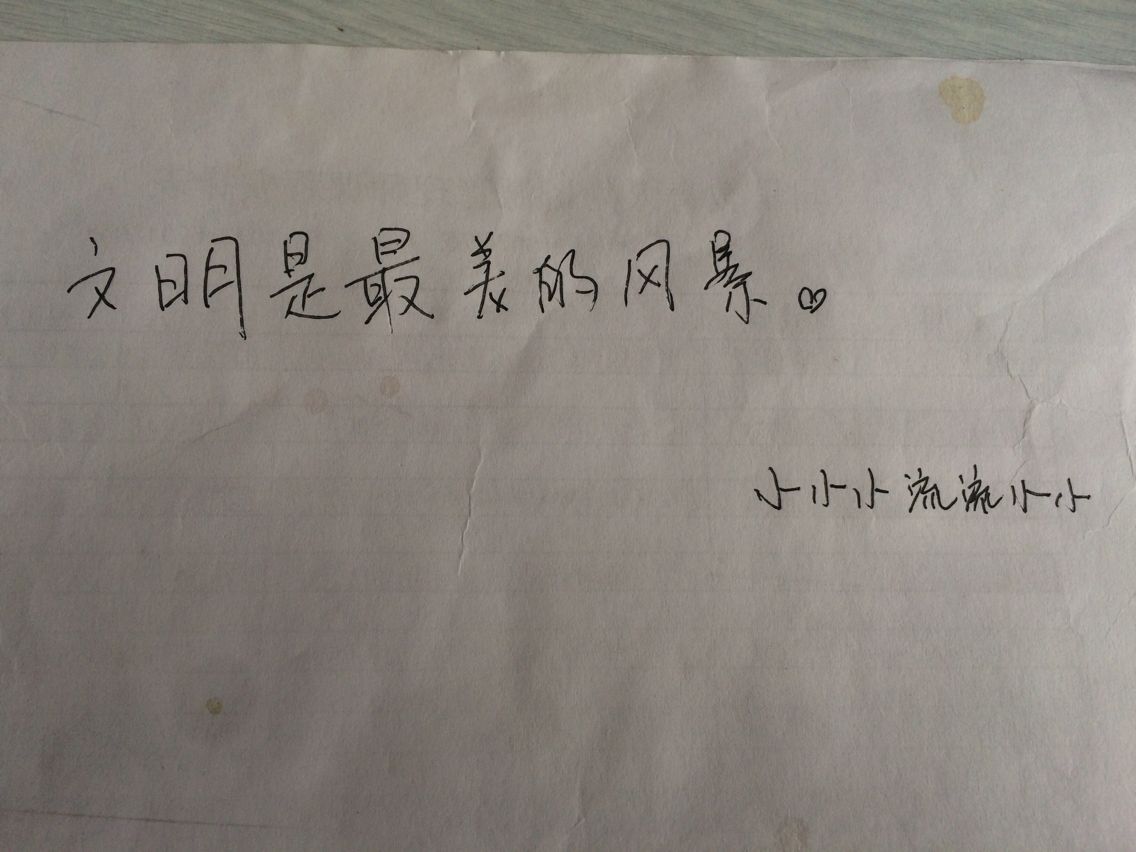 文明是最美的风景。
小小小流流小小